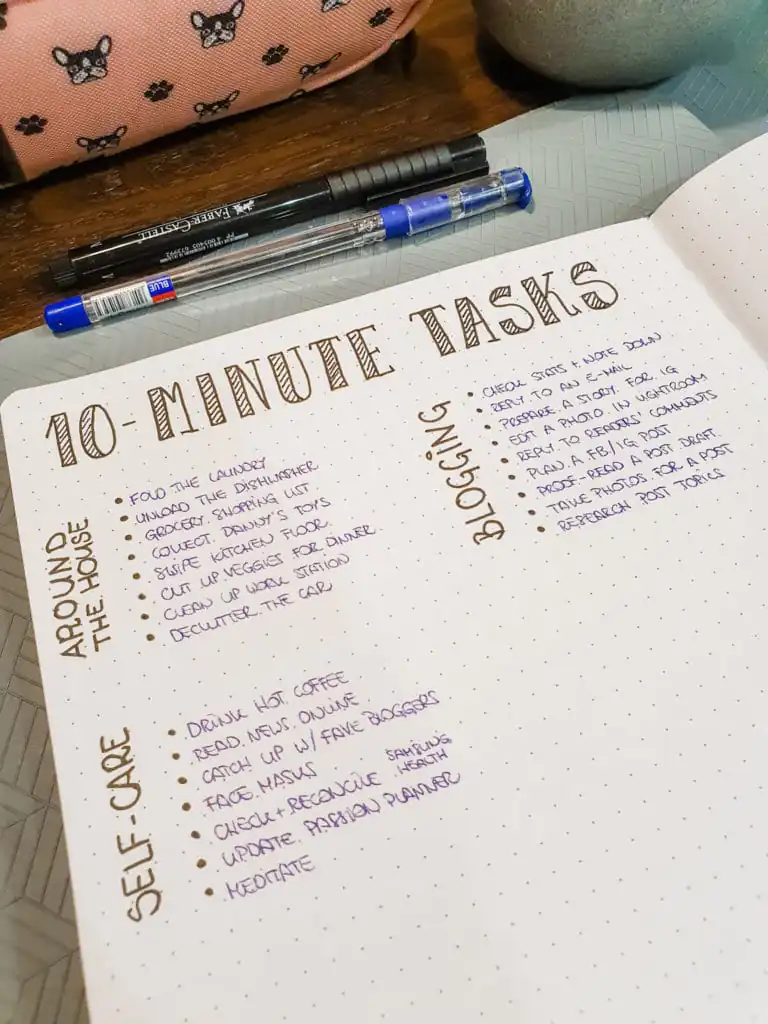 FABER-CASTELL
BLUE
10-MINUTE TASKS
AROUND
THE HOUSE
• FOLD THE LAUNDRY
• UNLOAD THE DISHWASHER
• GROCERY SHOPPING LIST
• COLLECT DANNY'S TOYS
• SWIPE KITCHEN FLOOR
• CUT UP VEGGIES FOR DINNER
• CLEAN UP WORK STATION
• DECLUTTER THE CAR
BLOGGING
• CHECK STATS + NOTE DOWN
• REPLY TO AN E-MAIL
• PREPARE A STORY FOR IG
• EDIT A PHOTO IN LIGHTROOM
• REPLY TO READERS' COMMENTS
• PLAN A FB/IG POST
• PROOF-READ A POST DRAFT
• TAKE PHOTOS FOR A POST
• RESEARCH POST TOPICS
SELF-CARE
• DRINK HOT COFFEE
• READ NEWS ONLINE
• CATCH UP W/ FAVE BLOGGERS
• FACE MASKS
• CHECK + RECONCILE SAMSUNG HEALTH
• UPDATE PASSION PLANNER
• MEDITATE